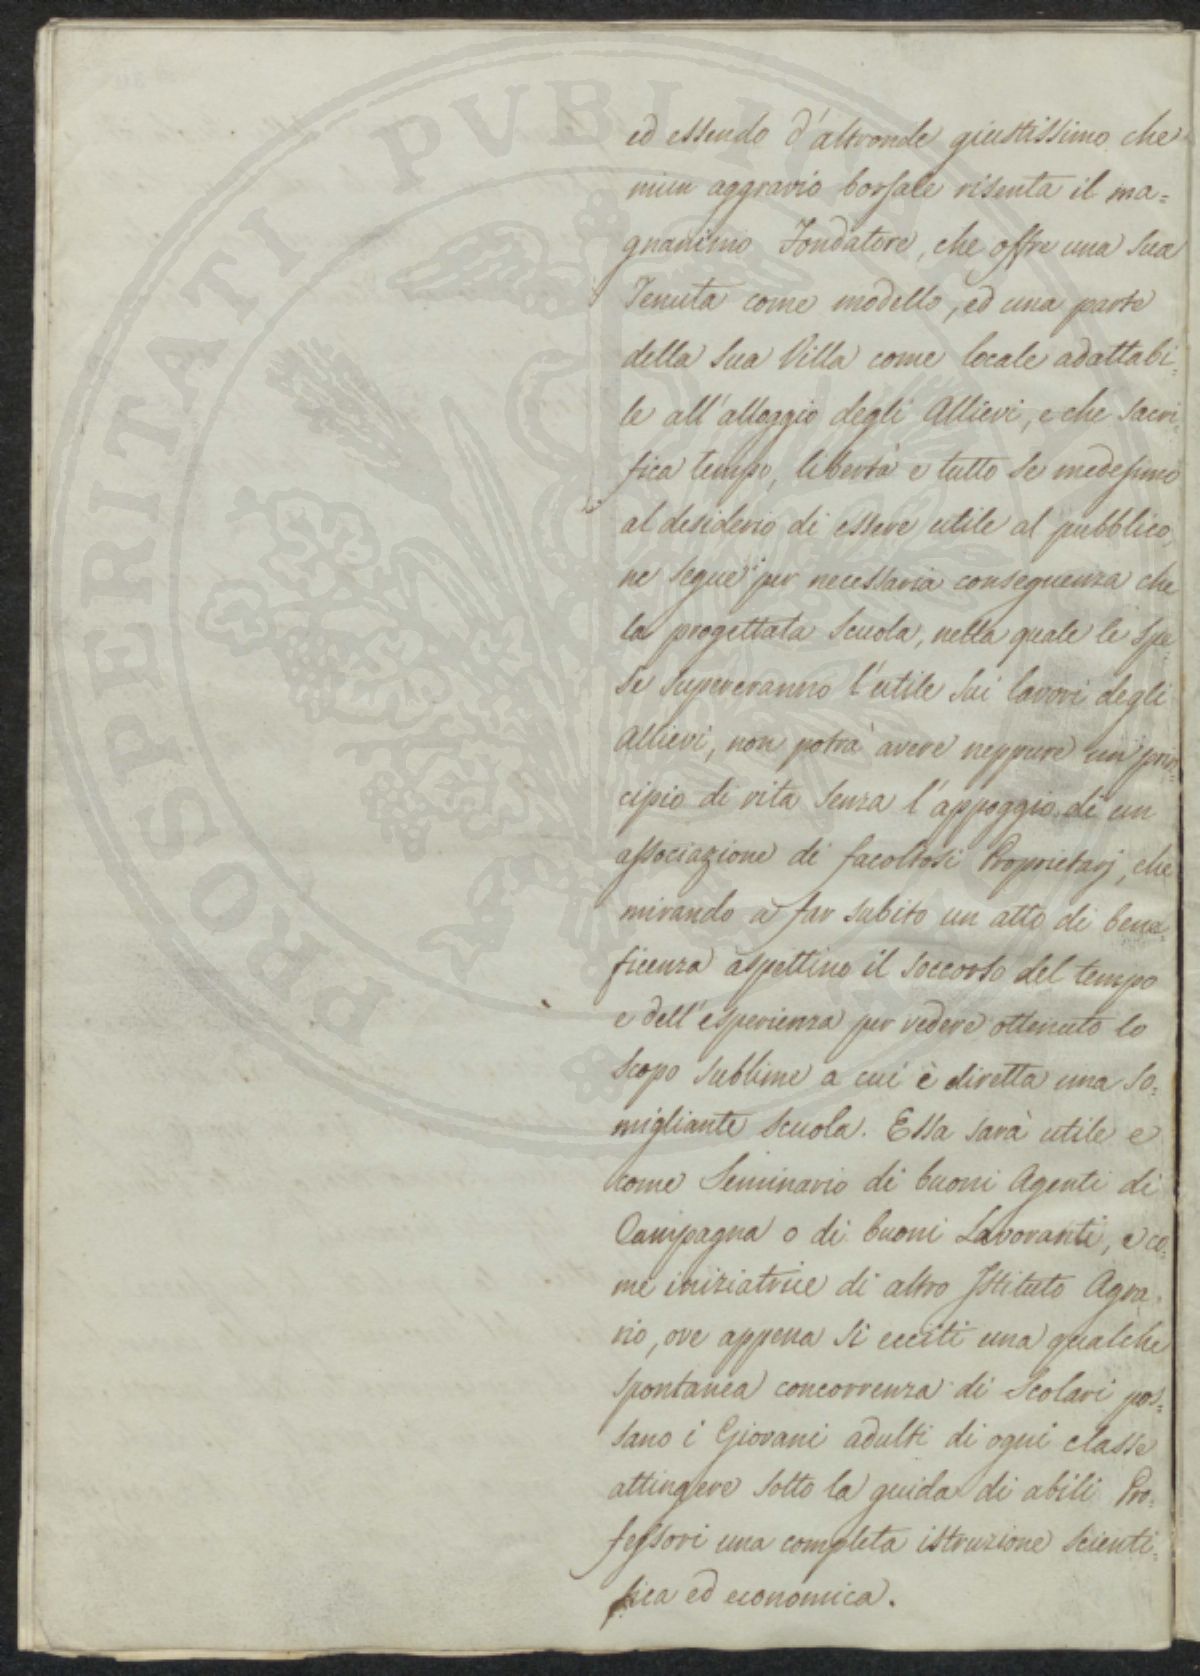 PROSPERITATI PUBLICAE
ed essendo d'altronde giustissimo che
niun aggravio borsale risenta il ma=
gnanimo Fondatore, che offre una sua
Tenuta come modello, ed una parte
della sua Villa come locale adattabi=
le all'alloggio degli Allievi, e che sacri=
fica tempo, libertà e tutto se medesimo
al desiderio di essere utile al pubblico,
ne segue per necessaria conseguenza che
la progettata Scuola, nella quale le spe=
se supereranno l'utile sui lavori degli
Allievi, non potrà avere neppure un prin=
cipio di vita senza l'appoggio di un
associazione di facoltosi Proprietarj, che
mirando a far subito un atto di bene=
ficenza aspettino il soccorso del tempo
e dell'esperienza per vedere ottenuto lo
scopo sublime a cui è diretta una so=
migliante Scuola. Essa sarà utile e
come Seminario di buoni Agenti di
Campagna o di buoni Lavoranti, e co=
me iniziatrice di altro Istituto Agra=
rio, ove appena si ecciti una qualche
spontanea concorrenza di Scolari pos=
sano i Giovani adulti di ogni classe
attingere sotto la guida di abili Pro=
fessori una completa istruzione scienti=
fica ed economica.